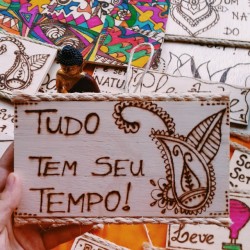 TUDO
TEM SEU
TEMPO!
NATU
DO
Leve